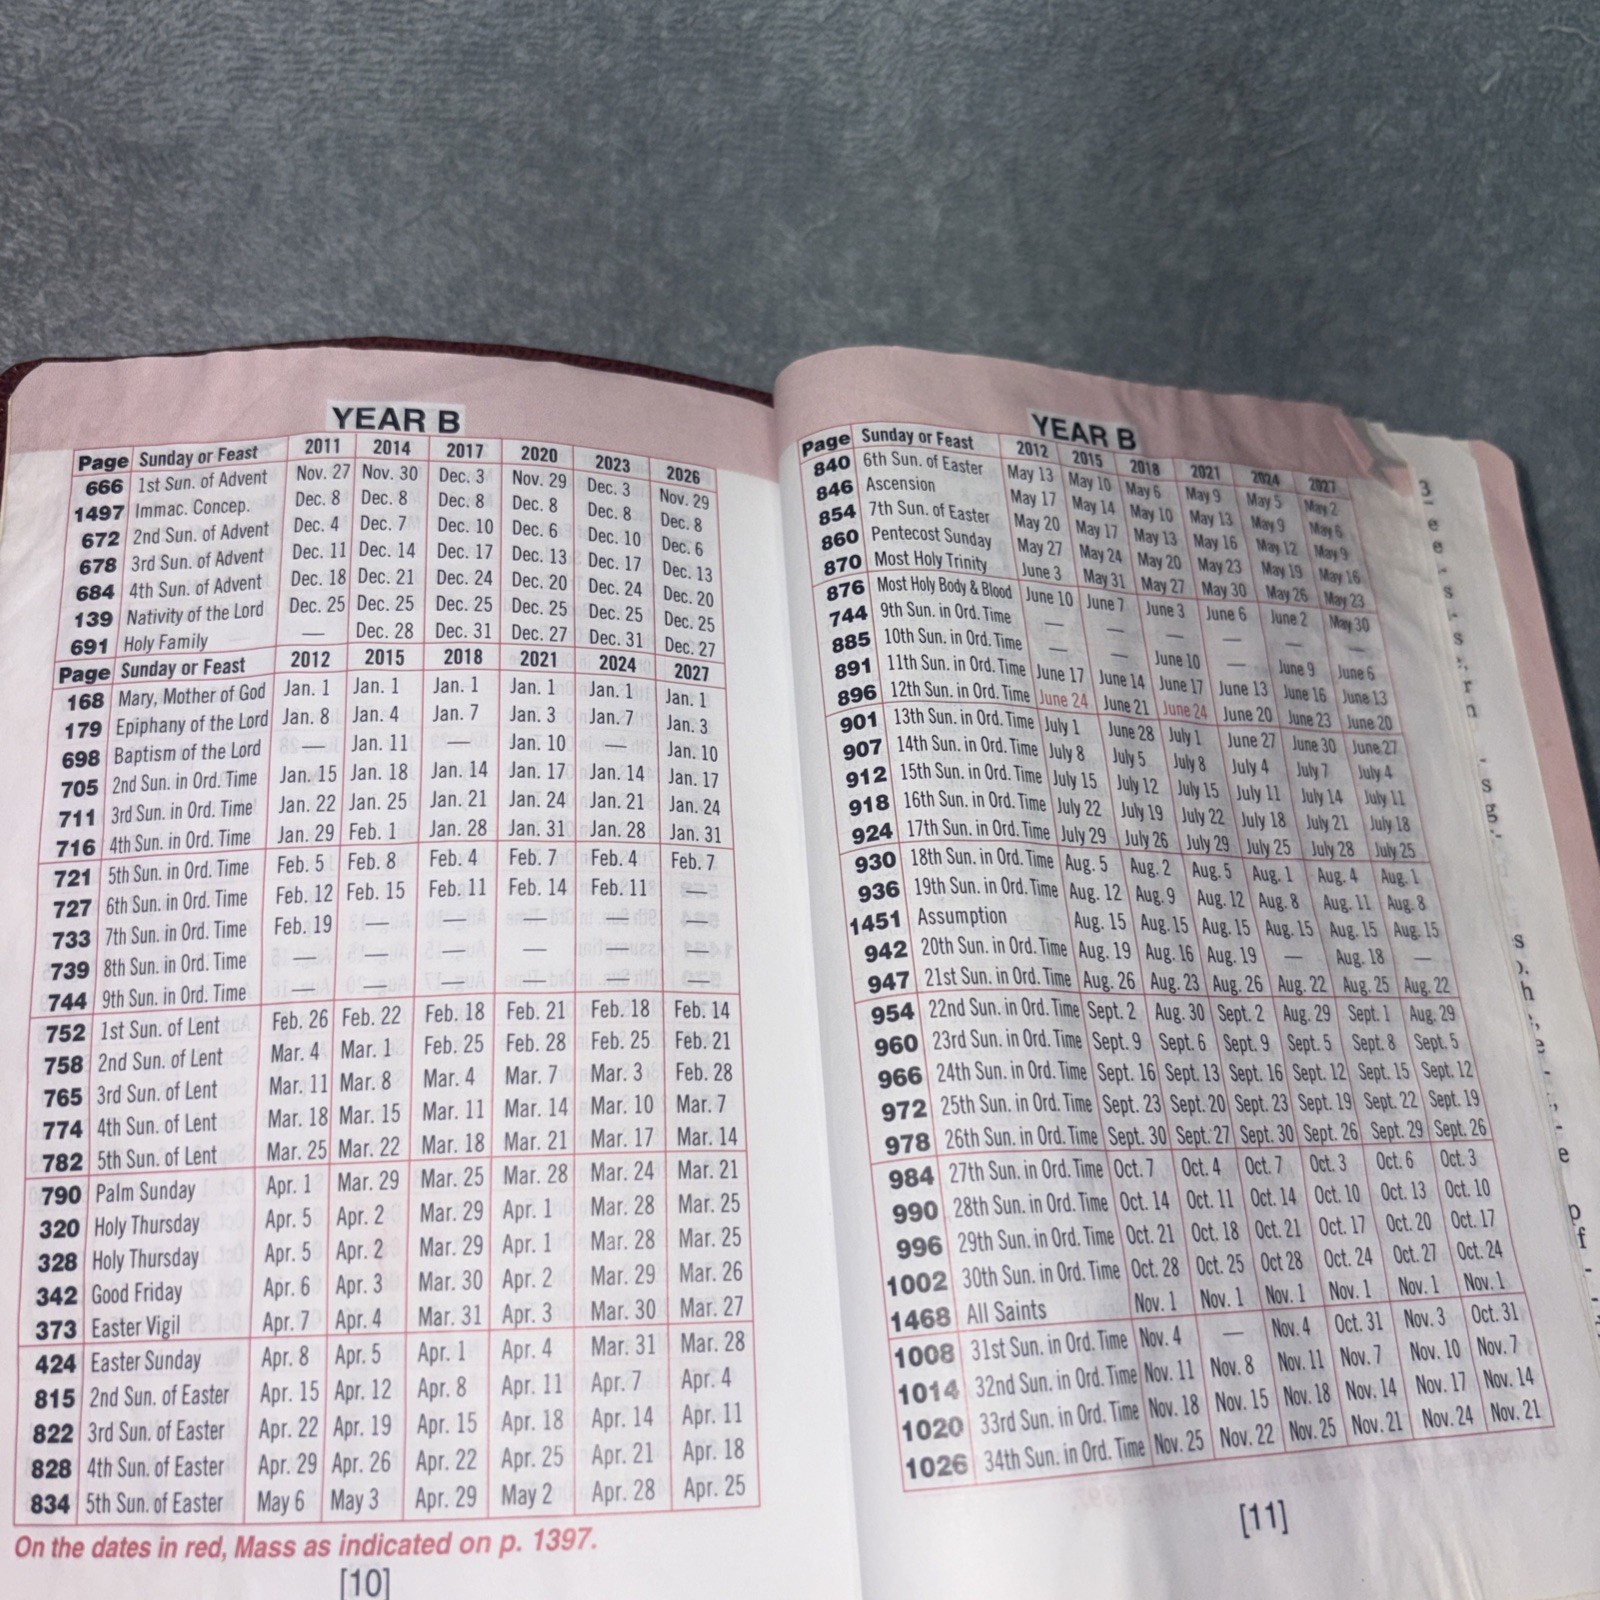 YEAR B
Page Sunday or Feast 2011 2014 2017 2020 2023 2026
666 1st Sun. of Advent Nov. 27 Nov. 30 Dec. 3 Nov. 29 Dec. 3 Nov. 29
1497 Immac. Concep. Dec. 8 Dec. 8 Dec. 8 Dec. 8 Dec. 8 Dec. 8
672 2nd Sun. of Advent Dec. 4 Dec. 7 Dec. 10 Dec. 6 Dec. 10 Dec. 6
678 3rd Sun. of Advent Dec. 11 Dec. 14 Dec. 17 Dec. 13 Dec. 17 Dec. 13
684 4th Sun. of Advent Dec. 18 Dec. 21 Dec. 24 Dec. 20 Dec. 24 Dec. 20
139 Nativity of the Lord Dec. 25 Dec. 25 Dec. 25 Dec. 25 Dec. 25 Dec. 25
691 Holy Family — Dec. 28 Dec. 31 Dec. 27 Dec. 31 Dec. 27
Page Sunday or Feast 2012 2015 2018 2021 2024 2027
168 Mary, Mother of God Jan. 1 Jan. 1 Jan. 1 Jan. 1 Jan. 1 Jan. 1
179 Epiphany of the Lord Jan. 8 Jan. 4 Jan. 7 Jan. 3 Jan. 7 Jan. 3
698 Baptism of the Lord — Jan. 11 — Jan. 10 — Jan. 10
705 2nd Sun. in Ord. Time Jan. 15 Jan. 18 Jan. 14 Jan. 17 Jan. 14 Jan. 17
711 3rd Sun. in Ord. Time Jan. 22 Jan. 25 Jan. 21 Jan. 24 Jan. 21 Jan. 24
716 4th Sun. in Ord. Time Jan. 29 Feb. 1 Jan. 28 Jan. 31 Jan. 28 Jan. 31
721 5th Sun. in Ord. Time Feb. 5 Feb. 8 Feb. 4 Feb. 7 Feb. 4 Feb. 7
727 6th Sun. in Ord. Time Feb. 12 Feb. 15 Feb. 11 Feb. 14 Feb. 11 —
733 7th Sun. in Ord. Time Feb. 19 — — — — —
739 8th Sun. in Ord. Time — — — — — —
744 9th Sun. in Ord. Time — — — — — —
752 1st Sun. of Lent Feb. 26 Feb. 22 Feb. 18 Feb. 21 Feb. 18 Feb. 14
758 2nd Sun. of Lent Mar. 4 Mar. 1 Feb. 25 Feb. 28 Feb. 25 Feb. 21
765 3rd Sun. of Lent Mar. 11 Mar. 8 Mar. 4 Mar. 7 Mar. 3 Feb. 28
774 4th Sun. of Lent Mar. 18 Mar. 15 Mar. 11 Mar. 14 Mar. 10 Mar. 7
782 5th Sun. of Lent Mar. 25 Mar. 22 Mar. 18 Mar. 21 Mar. 17 Mar. 14
790 Palm Sunday Apr. 1 Mar. 29 Mar. 25 Mar. 28 Mar. 24 Mar. 21
320 Holy Thursday Apr. 5 Apr. 2 Mar. 29 Apr. 1 Mar. 28 Mar. 25
328 Holy Thursday Apr. 5 Apr. 2 Mar. 29 Apr. 1 Mar. 28 Mar. 25
342 Good Friday Apr. 6 Apr. 3 Mar. 30 Apr. 2 Mar. 29 Mar. 26
373 Easter Vigil Apr. 7 Apr. 4 Mar. 31 Apr. 3 Mar. 30 Mar. 27
424 Easter Sunday Apr. 8 Apr. 5 Apr. 1 Apr. 4 Mar. 31 Mar. 28
815 2nd Sun. of Easter Apr. 15 Apr. 12 Apr. 8 Apr. 11 Apr. 7 Apr. 4
822 3rd Sun. of Easter Apr. 22 Apr. 19 Apr. 15 Apr. 18 Apr. 14 Apr. 11
828 4th Sun. of Easter Apr. 29 Apr. 26 Apr. 22 Apr. 25 Apr. 21 Apr. 18
834 5th Sun. of Easter May 6 May 3 Apr. 29 May 2 Apr. 28 Apr. 25
On the dates in red, Mass as indicated on p. 1397.
[10]
YEAR B
Page Sunday or Feast 2012 2015 2018 2021 2024 2027
840 6th Sun. of Easter May 13 May 10 May 6 May 9 May 5 May 2
846 Ascension May 17 May 14 May 10 May 13 May 9 May 6
854 7th Sun. of Easter May 20 May 17 May 13 May 16 May 12 May 9
860 Pentecost Sunday May 27 May 24 May 20 May 23 May 19 May 16
870 Most Holy Trinity June 3 May 31 May 27 May 30 May 26 May 23
876 Most Holy Body & Blood June 10 June 7 June 3 June 6 June 2 May 30
744 9th Sun. in Ord. Time — — — — — —
885 10th Sun. in Ord. Time — — June 10 — June 9 June 6
891 11th Sun. in Ord. Time June 17 June 14 June 17 June 13 June 16 June 13
896 12th Sun. in Ord. Time June 24 June 21 June 24 June 20 June 23 June 20
901 13th Sun. in Ord. Time July 1 June 28 July 1 June 27 June 30 June 27
907 14th Sun. in Ord. Time July 8 July 5 July 8 July 4 July 7 July 4
912 15th Sun. in Ord. Time July 15 July 12 July 15 July 11 July 14 July 11
918 16th Sun. in Ord. Time July 22 July 19 July 22 July 18 July 21 July 18
924 17th Sun. in Ord. Time July 29 July 26 July 29 July 25 July 28 July 25
930 18th Sun. in Ord. Time Aug. 5 Aug. 2 Aug. 5 Aug. 1 Aug. 4 Aug. 1
936 19th Sun. in Ord. Time Aug. 12 Aug. 9 Aug. 12 Aug. 8 Aug. 11 Aug. 8
1451 Assumption Aug. 15 Aug. 15 Aug. 15 Aug. 15 Aug. 15 Aug. 15
942 20th Sun. in Ord. Time Aug. 19 Aug. 16 Aug. 19 — Aug. 18 —
947 21st Sun. in Ord. Time Aug. 26 Aug. 23 Aug. 26 Aug. 22 Aug. 25 Aug. 22
954 22nd Sun. in Ord. Time Sept. 2 Aug. 30 Sept. 2 Aug. 29 Sept. 1 Aug. 29
960 23rd Sun. in Ord. Time Sept. 9 Sept. 6 Sept. 9 Sept. 5 Sept. 8 Sept. 5
966 24th Sun. in Ord. Time Sept. 16 Sept. 13 Sept. 16 Sept. 12 Sept. 15 Sept. 12
972 25th Sun. in Ord. Time Sept. 23 Sept. 20 Sept. 23 Sept. 19 Sept. 22 Sept. 19
978 26th Sun. in Ord. Time Sept. 30 Sept. 27 Sept. 30 Sept. 26 Sept. 29 Sept. 26
984 27th Sun. in Ord. Time Oct. 7 Oct. 4 Oct. 7 Oct. 3 Oct. 6 Oct. 3
990 28th Sun. in Ord. Time Oct. 14 Oct. 11 Oct. 14 Oct. 10 Oct. 13 Oct. 10
996 29th Sun. in Ord. Time Oct. 21 Oct. 18 Oct. 21 Oct. 17 Oct. 20 Oct. 17
1002 30th Sun. in Ord. Time Oct. 28 Oct. 25 Oct 28 Oct. 24 Oct. 27 Oct. 24
1468 All Saints Nov. 1 Nov. 1 Nov. 1 Nov. 1 Nov. 1 Nov. 1
1008 31st Sun. in Ord. Time Nov. 4 — Nov. 4 Oct. 31 Nov. 3 Oct. 31
1014 32nd Sun. in Ord. Time Nov. 11 Nov. 8 Nov. 11 Nov. 7 Nov. 10 Nov. 7
1020 33rd Sun. in Ord. Time Nov. 18 Nov. 15 Nov. 18 Nov. 14 Nov. 17 Nov. 14
1026 34th Sun. in Ord. Time Nov. 25 Nov. 22 Nov. 25 Nov. 21 Nov. 24 Nov. 21
[11]